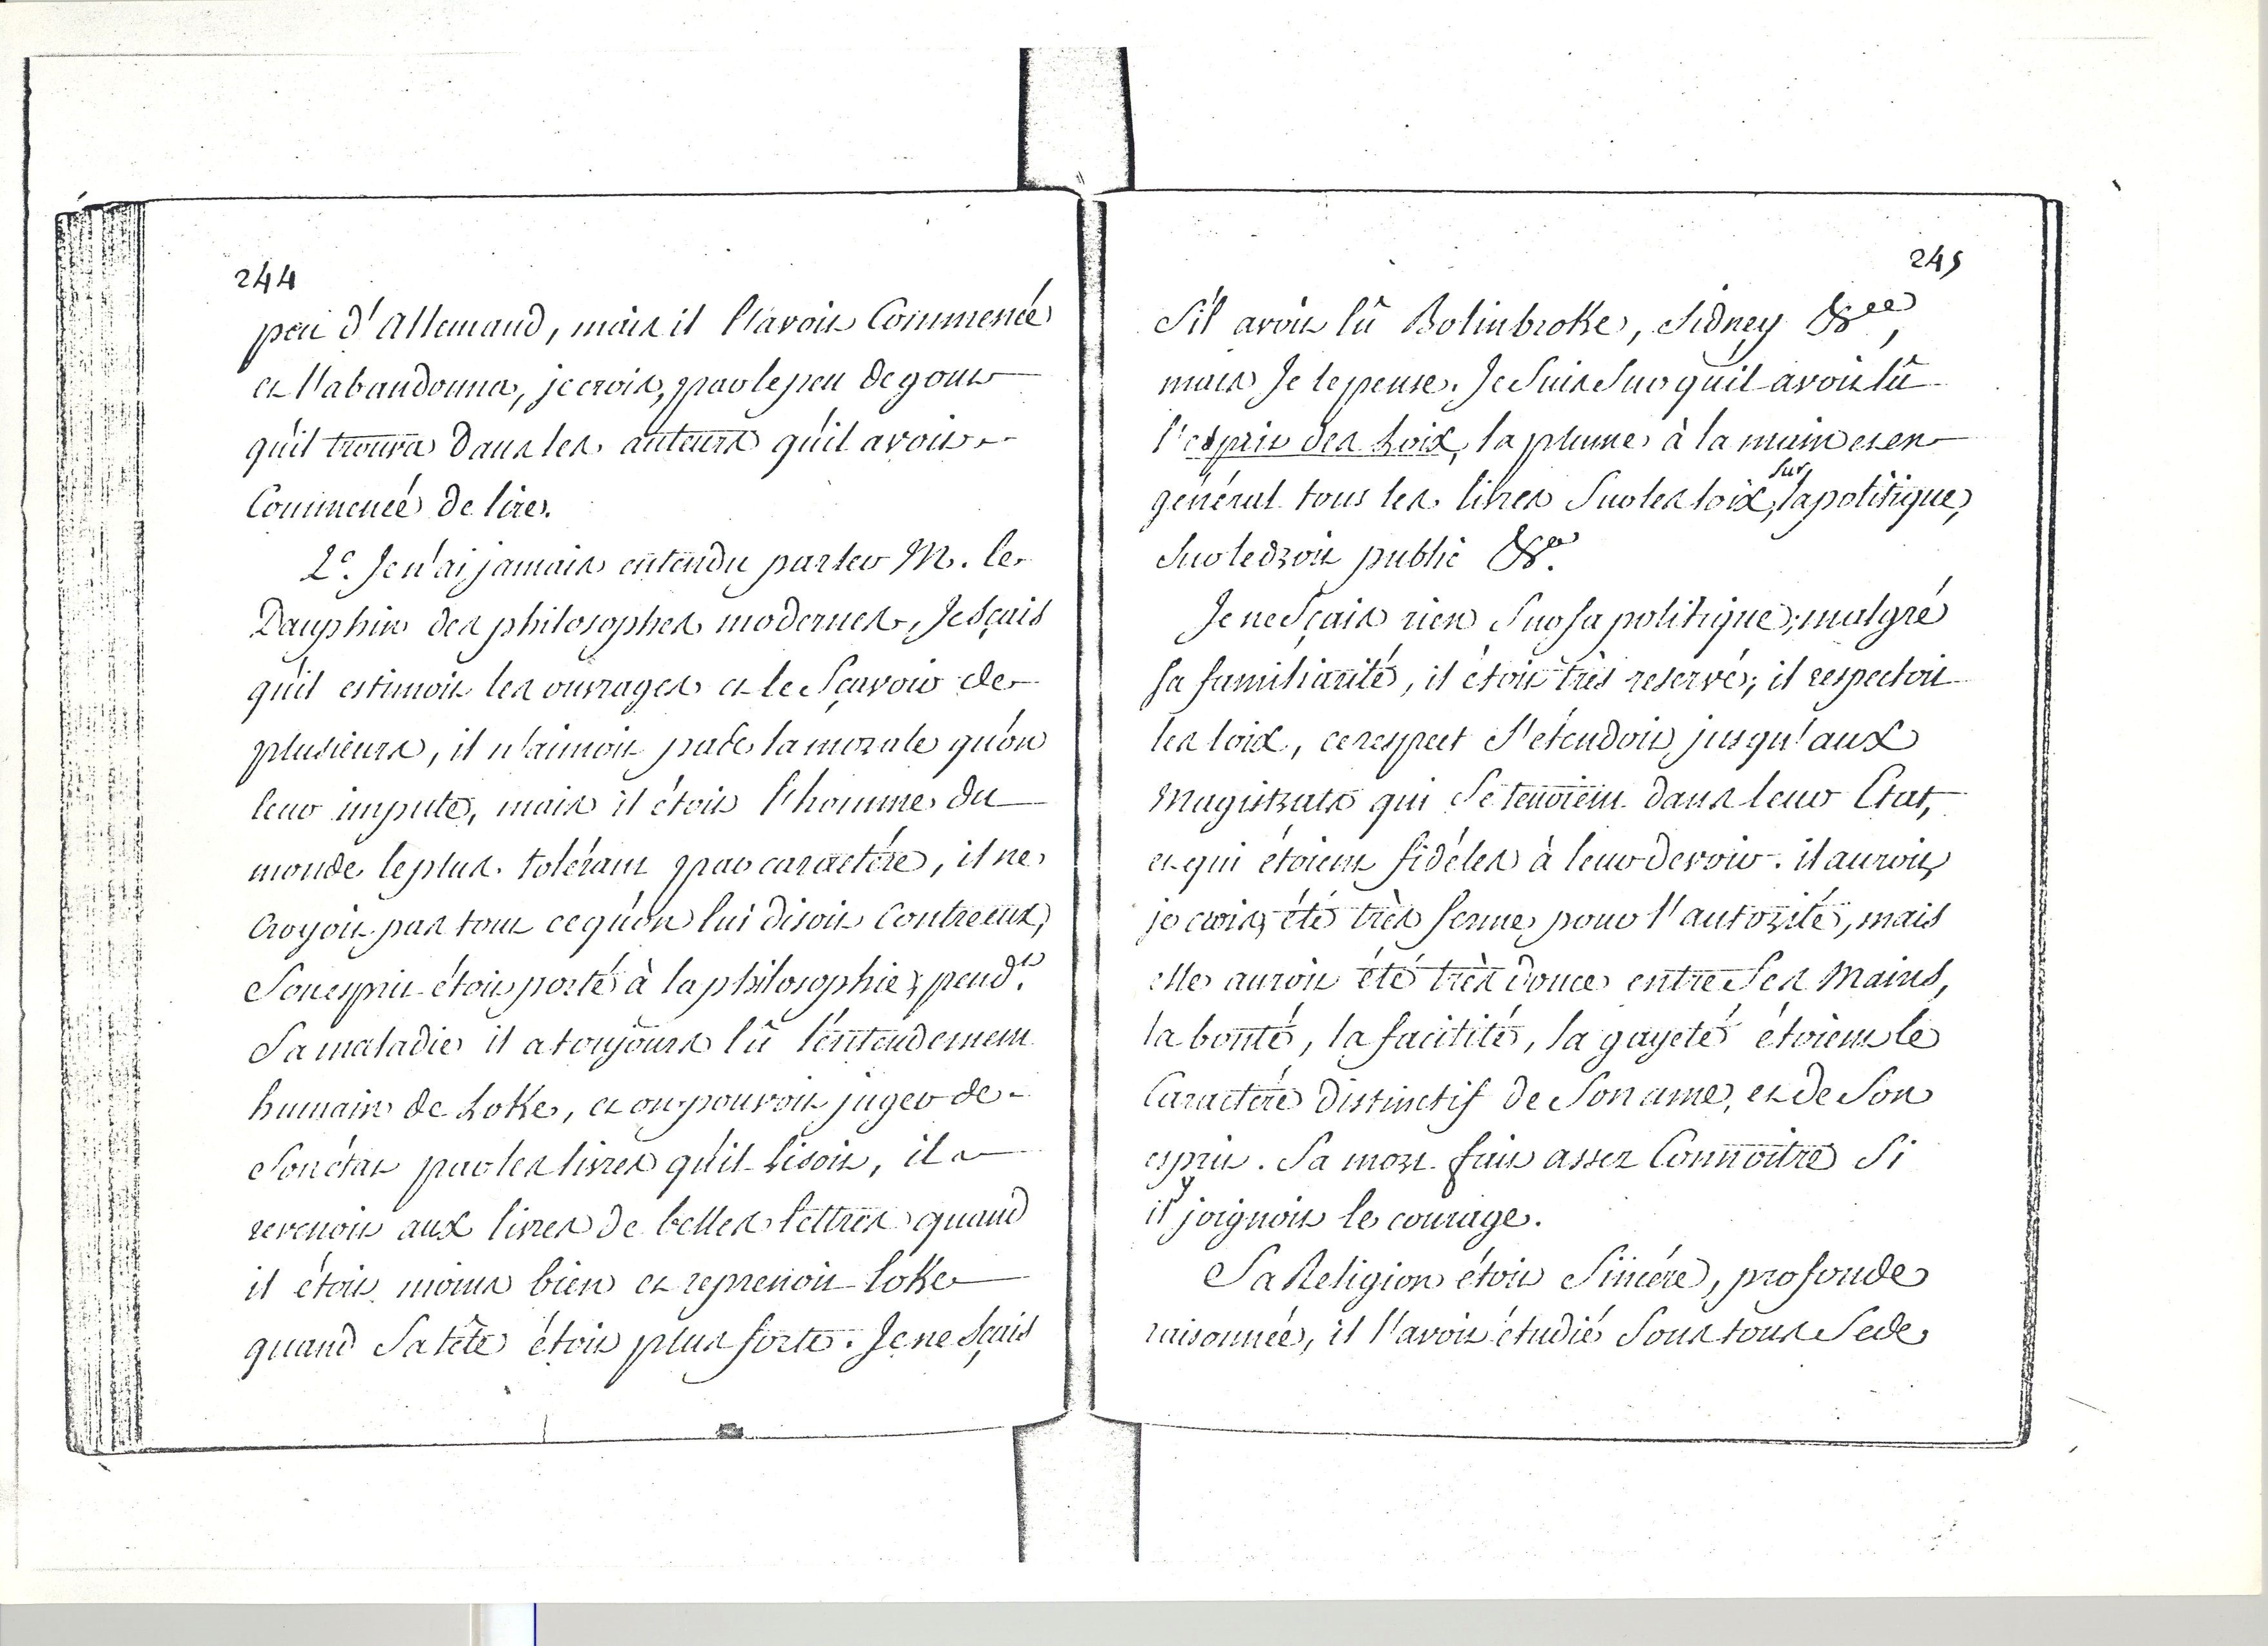 244
peu d'Allemand, mais il l'avoit Commencé
et l'abandonna, je crois, par le peu de gout
qu'il trouva dans les auteurs qu'il avoit
Commencé de lire.
2.e Je n'ai jamais entendu parler M. le
Dauphin des philosophes modernes, Je sçais
qu'il estimoit les ouvrages et le Sçavoir de
plusieurs, il n'aimoit pas de la morale qu'on
leur impute, mais il étoit l'homme du
monde le plus tolérant par caractére, il ne
croyoit pas tout ce qu'on lui disoit contre eux,
Son esprit étoit porté à la philosophie; pend.t
Sa maladie il a toujours lû l'entendement
humain de Loke, et on pouvoit juger de
Son état par les livres qu'il lisoit, il
revenoit aux livres de belles lettres quand
il étoit moins bien et reprenoit Loke
quand Sa tête étoit plus forte. Je ne Sçais
245
S'il avoit lû Bolinbroke, Sidney &ca,
mais Je le pense. Je Suis Sur qu'il avoit lû
l'esprit des Loix, la plume à la main et en
général tous les livres Sur les loix, sur la politique,
Sur le droit public &a.
Je ne Sçais rien Sur Sa politique; malgré
Sa familiarité, il étoit très reservé; il respectoit
les loix, ce respect S'étendoit jusqu'aux
Magistrats qui Se tenoient dans leur Etat,
et qui étoient fidéles à leur devoir. il auroit,
je crois, été très ferme pour l'autorité, mais
elle auroit été très douce entre Ses Mains,
la bonté, la facilité, la gayeté étoient le
Caractére distinctif de Son ame, et de Son
esprit. Sa mort fait assez Connoitre Si
il y joignoit le courage.
Sa Religion étoit Sincére, profonde
raisonnée, il l'avoit étudié Sous tous Se de